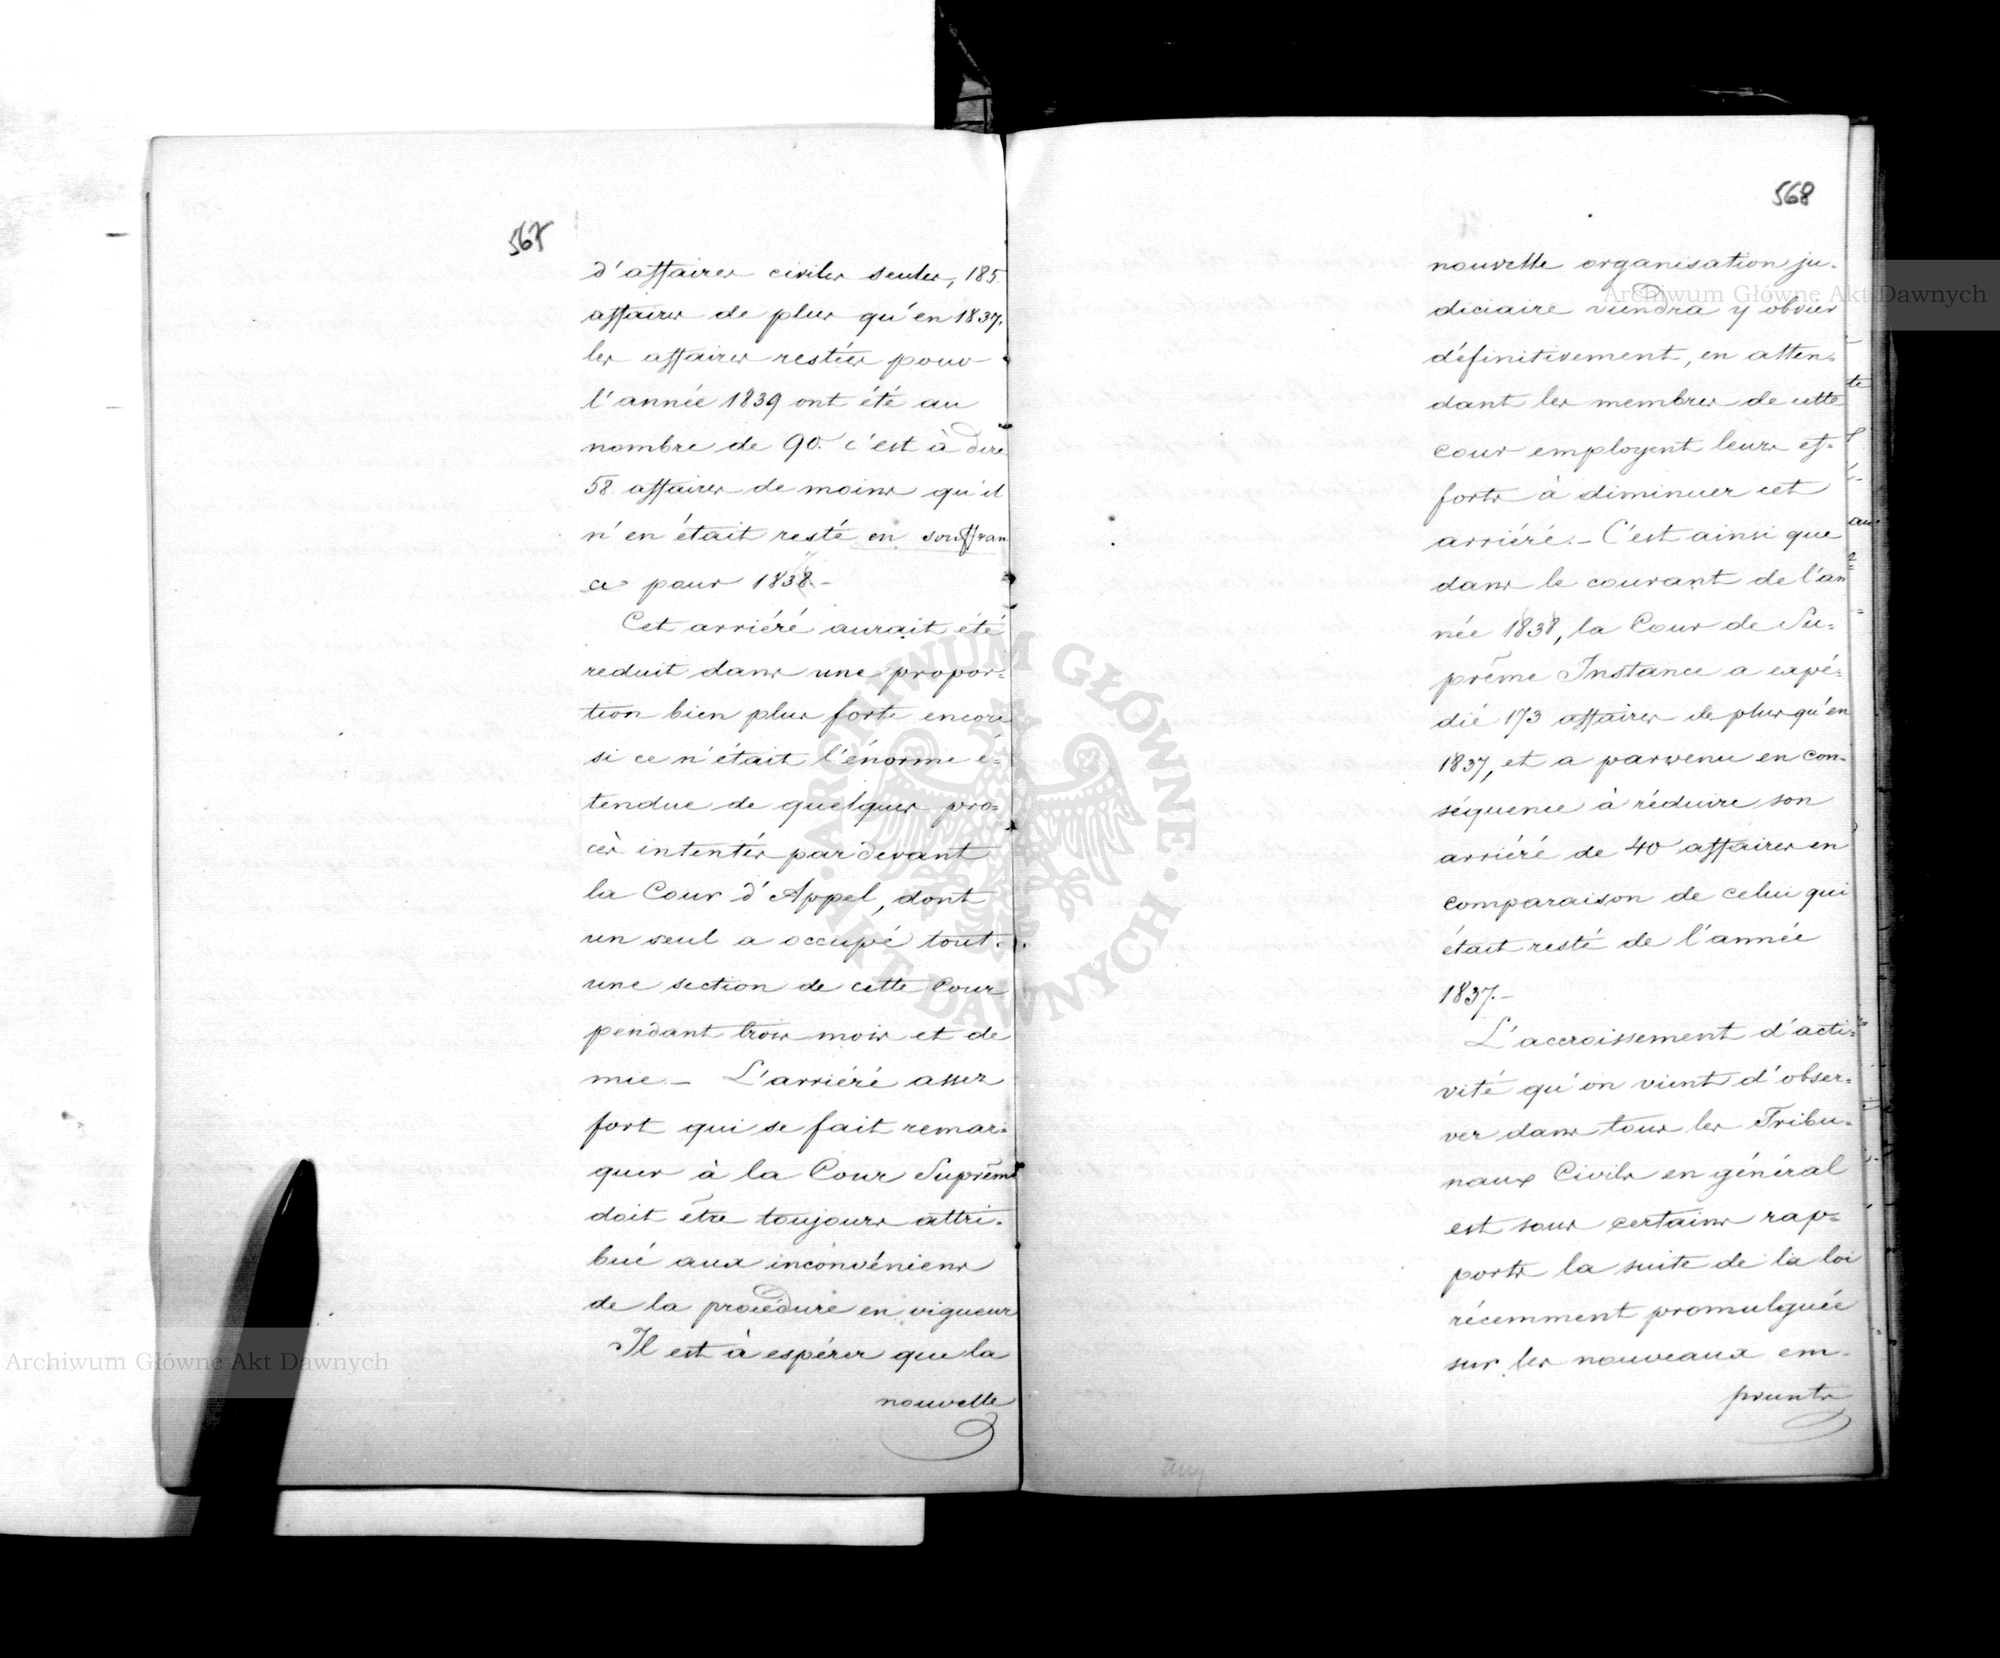 567
d'affaires civiles seules, 185.
affaires de plus qu'en 1837.
les affaires restées pour
l'année 1839 ont été au
nombre de 90. c'est à dire
58 affaires de moins qu'il
n'en était resté en souffran
ce pour 1838.-
Cet arriéré aurait été
reduit dans une propor-
tion bien plus forte encore
si ce n'était l'énorme é-
tendue de quelques pro=
cès intentés par devant
la Cour d'Appel, dont
un seul a occupé tout-
une section de cette Cour
pendant trois mois et de
mie.- L'arriéré assez
fort qui se fait remar=
quer à la Cour Suprême
doit être toujours attri-
bué aux inconvéniens
de la procédure en vigueur
Il est à espérer que la
nouvelle
568
nouvelle organisation ju-
diciaire viendra y obvier
définitivement, en atten-
dant les membres de cette
cour employent leurs ef-
forts à diminuer cet
arriéré.- C'est ainsi que
dans le courant de l'an
née 1838, la Cour de Su=
prême Instance a expé=
dié 173 affaires de plus qu'en
1837, et a parvenu en con-
séquence à réduire son
arriéré de 40 affaires en
comparaison de celui qui
était resté de l'année
1837.-
L'accroissement d'acti=
vité qu'on vient d'obser=
ver dans tous les Tribu=
naux Civils en général
est sous certains rap=
ports la suite de la loi
récemment promulguée
sur les nouveaux em-
prunts
Archiwum Główne Akt Dawnych
Archiwum Główne Akt Dawnych
ARCHIWUM GŁÓWNE · AKT DAWNYCH ·